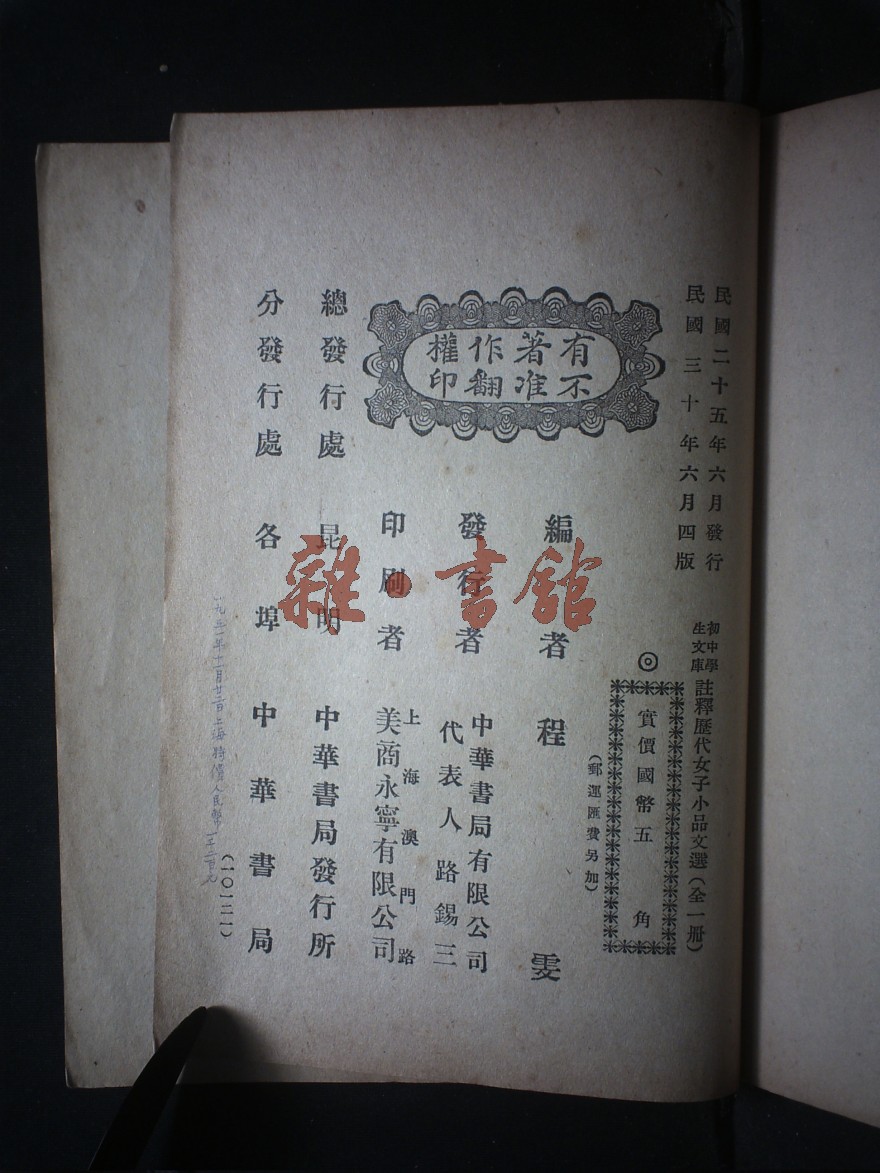 民國二十五年六月發行
民國三十年六月四版
初中學生文庫
註釋歷代女子小品文選（全一册）
◎
實價國幣五角
（郵運匯費另加）
有著作權
不准翻印
編者 程雯
發行者 中華書局有限公司
代表人路錫三
印刷者 上海澳門路
美商永寧有限公司
總發行處 昆明 中華書局發行所
分發行處 各埠 中華書局
（一〇一二一）
雜·書館